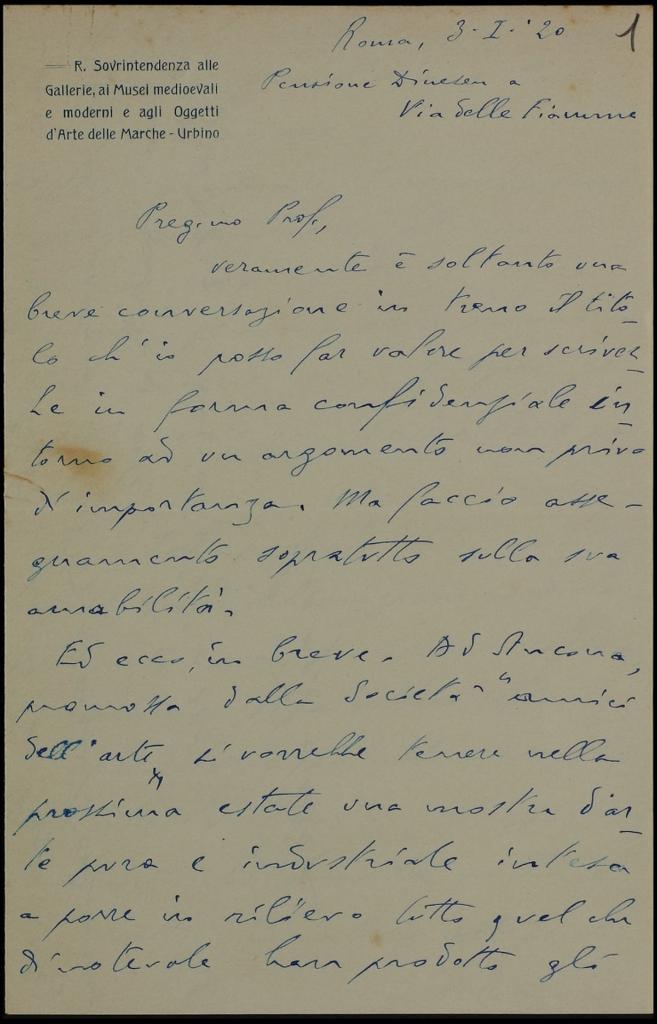 Roma, 3-I-'20
1
R. Sovrintendenza alle
Gallerie, ai Musei medioevali
e moderni e agli Oggetti
d'Arte delle Marche - Urbino
Pensione Dinesen a
Via delle Fiamme
Preg.mo Prof,
veramente è soltanto una
breve conversazione in treno il tito-
lo ch'io posso far valere per scriver-
Le in forma confidenziale in-
torno ad un argomento non privo
d'importanza. Ma faccio asse-
gnamento sopratutto sulla sua
amabilità.
Ed ecco, in breve. Ad Ancona,
promossa dalla Società "amici
dell'arte" si vorrebbe tenere nella
prossima estate una mostra d'ar-
te pura e industriale intesa
a porre in rilievo tutto quel che
di notevole han prodotto gli